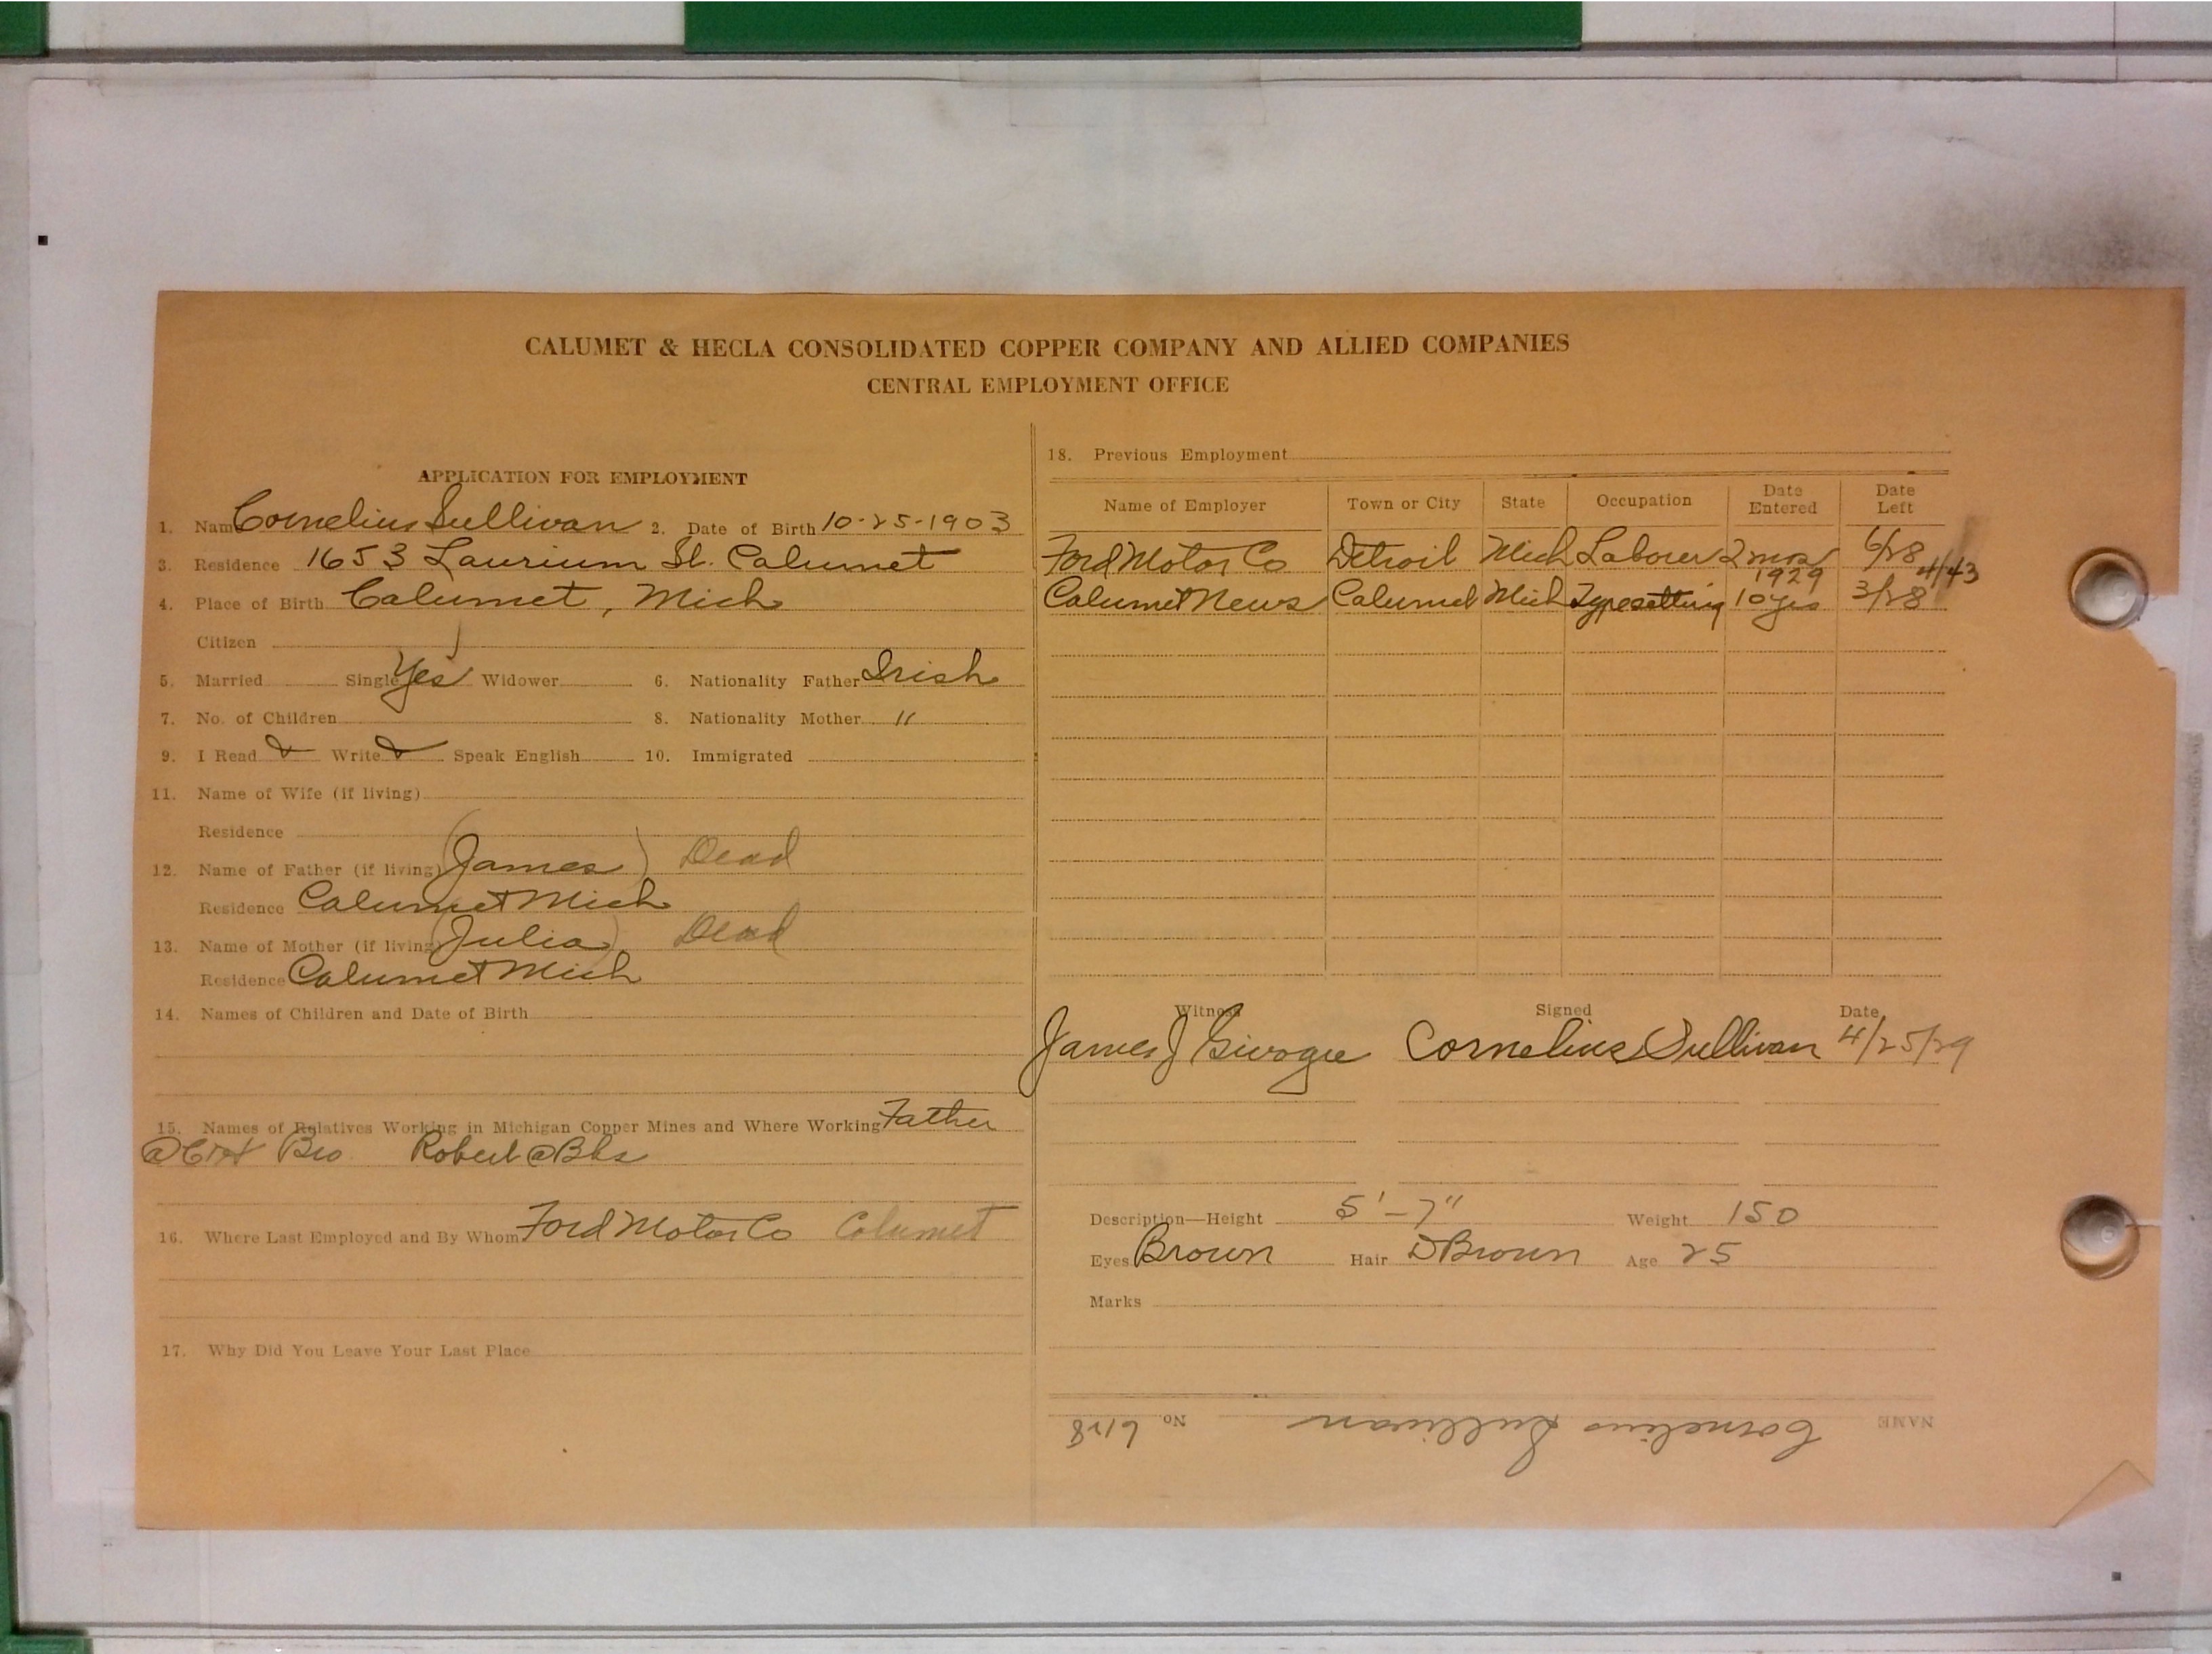 CALUMET & HECLA CONSOLIDATED COPPER COMPANY AND ALLIED COMPANIES
CENTRAL EMPLOYMENT OFFICE
APPLICATION FOR EMPLOYMENT
1. Name Cornelius Sullivan 2. Date of Birth 10-25-1903
3. Residence 1653 Laurium St. Calumet
4. Place of Birth Calumet, Mich
Citizen
5. Married Single Yes Widower 6. Nationality Father Irish
7. No. of Children 8. Nationality Mother "
9. I Read Write Speak English 10. Immigrated
11. Name of Wife (if living)
Residence
12. Name of Father (if living) (James) Dead
Residence Calumet Mich
13. Name of Mother (if living) (Julia) Dead
Residence Calumet Mich
14. Names of Children and Date of Birth
15. Names of Relatives Working in Michigan Copper Mines and Where Working Father
@ Bro Robert @
16. Where Last Employed and By Whom Ford Motor Co Calumet
17. Why Did You Leave Your Last Place
18. Previous Employment
Name of Employer Town or City State Occupation Date Entered Date Left
Ford Motor Co Detroit Mich Laborer 2 mos 6/28
1929 4/43
Calumet News Calumet Mich Typesetting 10 yrs 3/28
Witness Signed Date
James J Cornelius Sullivan 4/25/29
Description—Height 5'-7" Weight 150
Eyes Brown Hair D Brown Age 25
Marks
NAME Cornelius Sullivan No. 6128